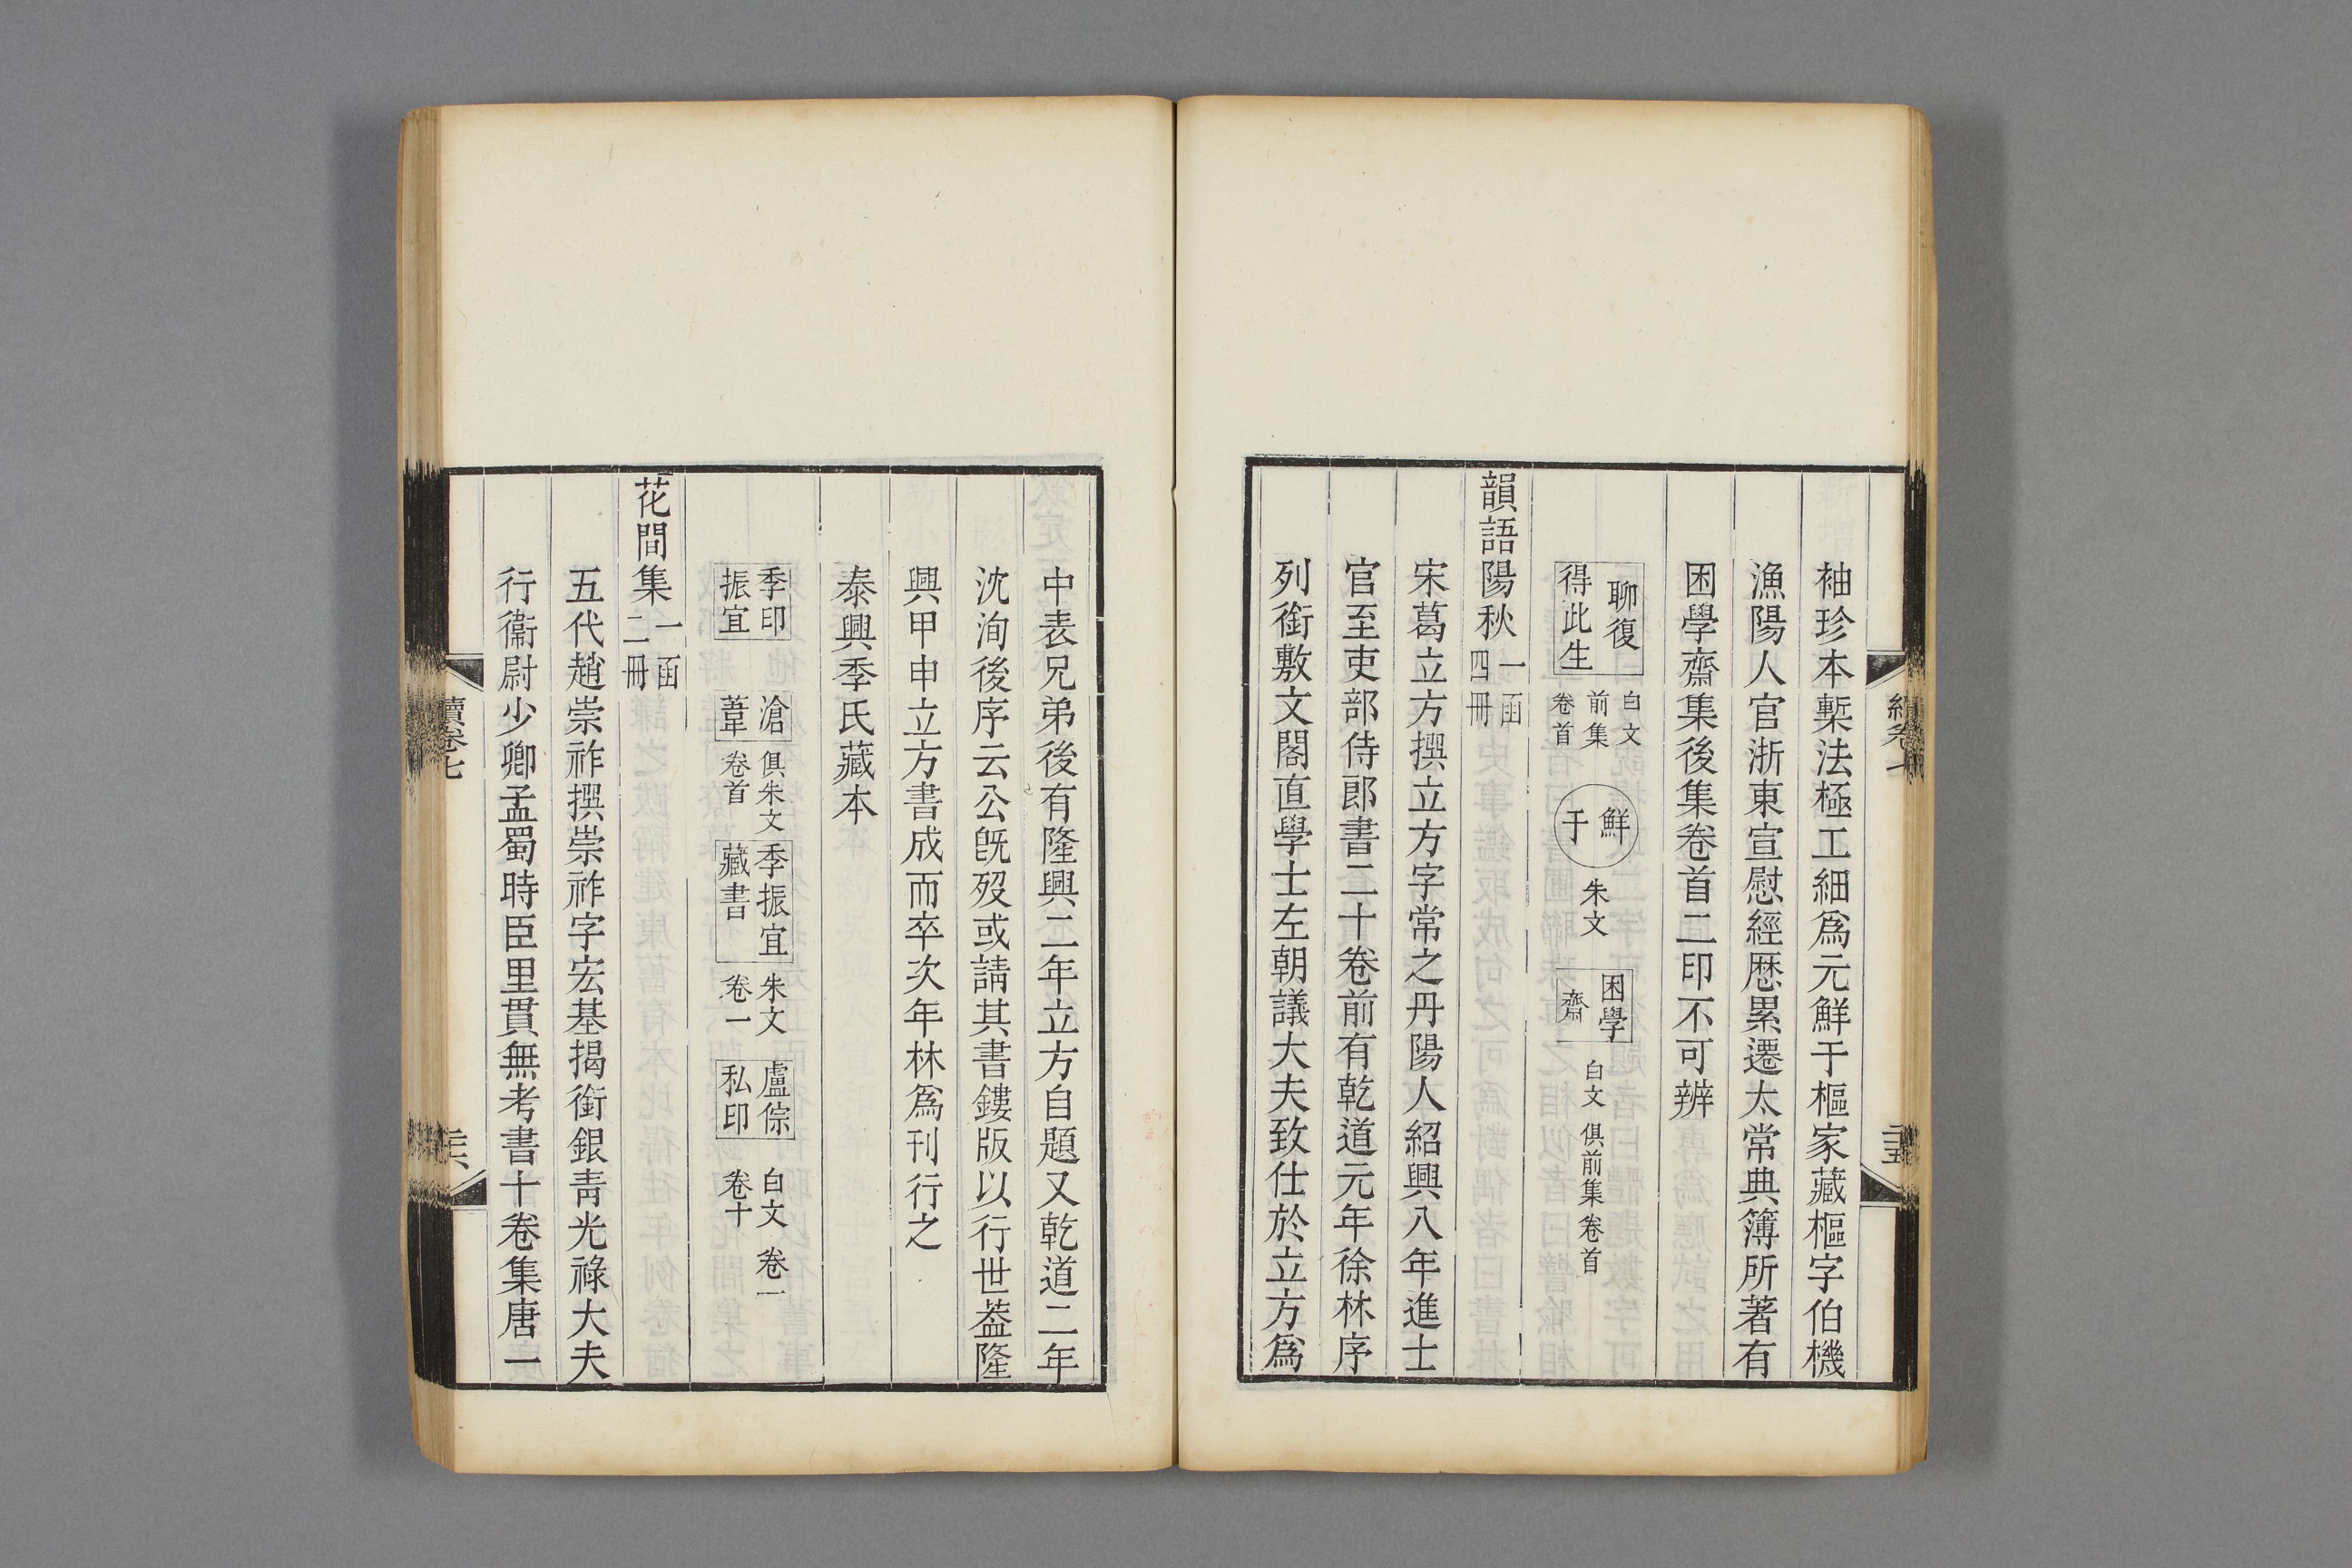 袖珍本槧法極工細爲元鮮于樞家藏樞字伯機
漁陽人官浙東宣慰經歷累遷太常典簿所著有
困學齋集後集卷首二印不可辨
聊復得此生 白文前集卷首 鮮于 朱文 困學齋 白文 俱前集卷首
韻語陽秋 一函四冊
宋葛立方撰立方字常之丹陽人紹興八年進士
官至吏部侍郎書二十卷前有乾道元年徐林序
列銜敷文閣直學士左朝議大夫致仕於立方爲
中表兄弟後有隆興二年立方自題又乾道二年
沈洵後序云公旣歿或請其書鏤版以行世葢隆
興甲申立方書成而卒次年林爲刊行之
泰興季氏藏本
季印振宜 滄葦 俱朱文卷首 季振宜藏書 朱文卷一 盧倧私印 白文卷十 卷一
花間集 一函二冊
五代趙崇祚撰崇祚字宏基揭銜銀靑光祿大夫
行衞尉少卿孟蜀時臣里貫無考書十卷集唐一
續卷七